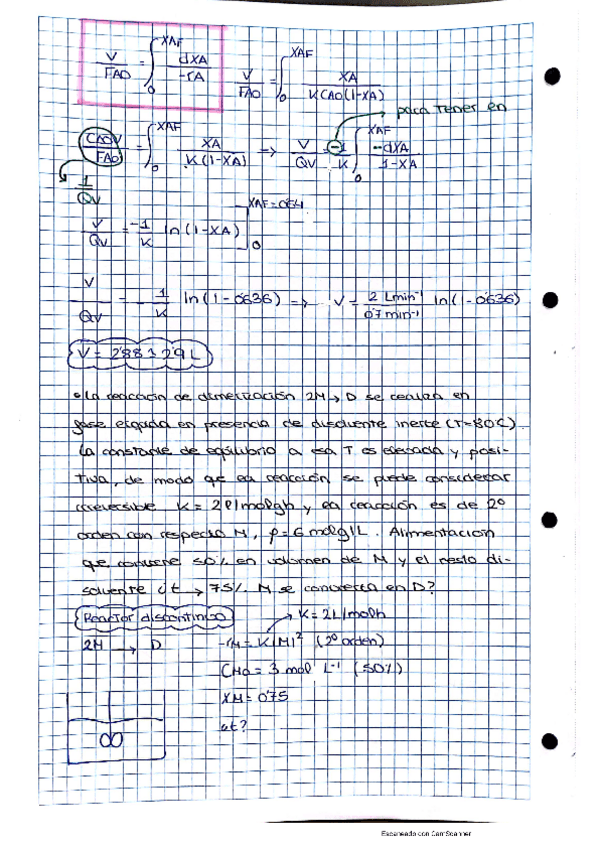 V/FAO = ∫₀^XAF dXA/-rA    V/FAO = ∫₀^XAF XA/KCAO(1-XA)
para tener en
CAOV/FAO = ∫₀^XAF XA/K(1-XA) => V/QV = -1/K ∫₀^XAF -dXA/1-XA
1/QV
V/QV = -1/K ln(1-XA) ]₀^XAF=0'64
V/QV = -1/K ln(1-0'636) => V = 2 Lmin⁻¹/0'7 min⁻¹ ln(1-0'636)
V = 2'88 ≈ 2'9 L
• La reacción de dimerización 2M → D se realiza en
fase líquida en presencia de disolvente inerte (T=80C)
La constante de equilibrio a esa T es elevada y posi-
tiva, de modo que la reacción se puede considerar
irreversible K = 2 l/molgh y la reacción es de 2º
orden con respecto M, ρ = 6 molg/L. Alimentación
que contiene 50% en volumen de M y el resto di-
solvente ¿t → 75% M se convierta en D?
Reactor discontinuo → K = 2L/molh
2M → D    -rM = K[M]² (2º orden)
CMO = 3 mol L⁻¹ (50%)
XM = 0'75
¿t?
Escaneado con CamScanner